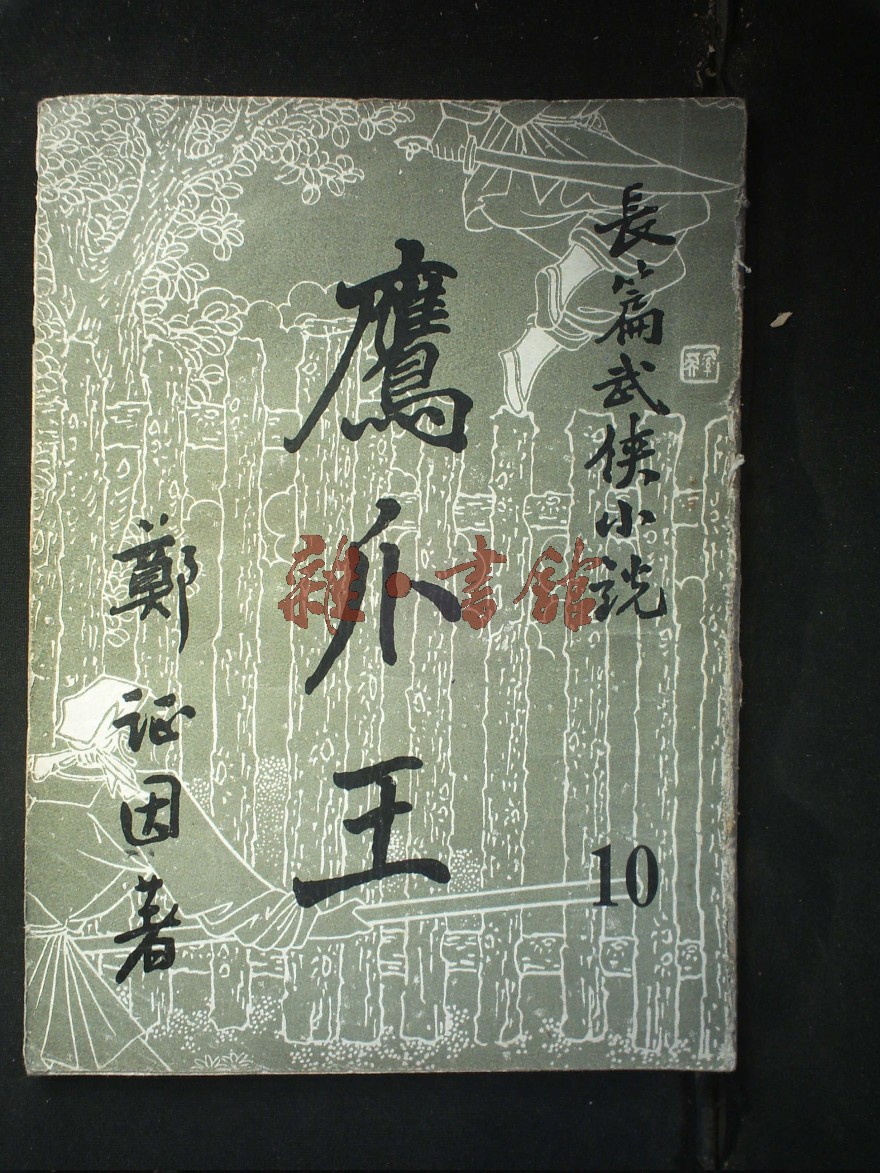 長篇武侠小说
鷹爪王
鄭证因著
10
雜·書館